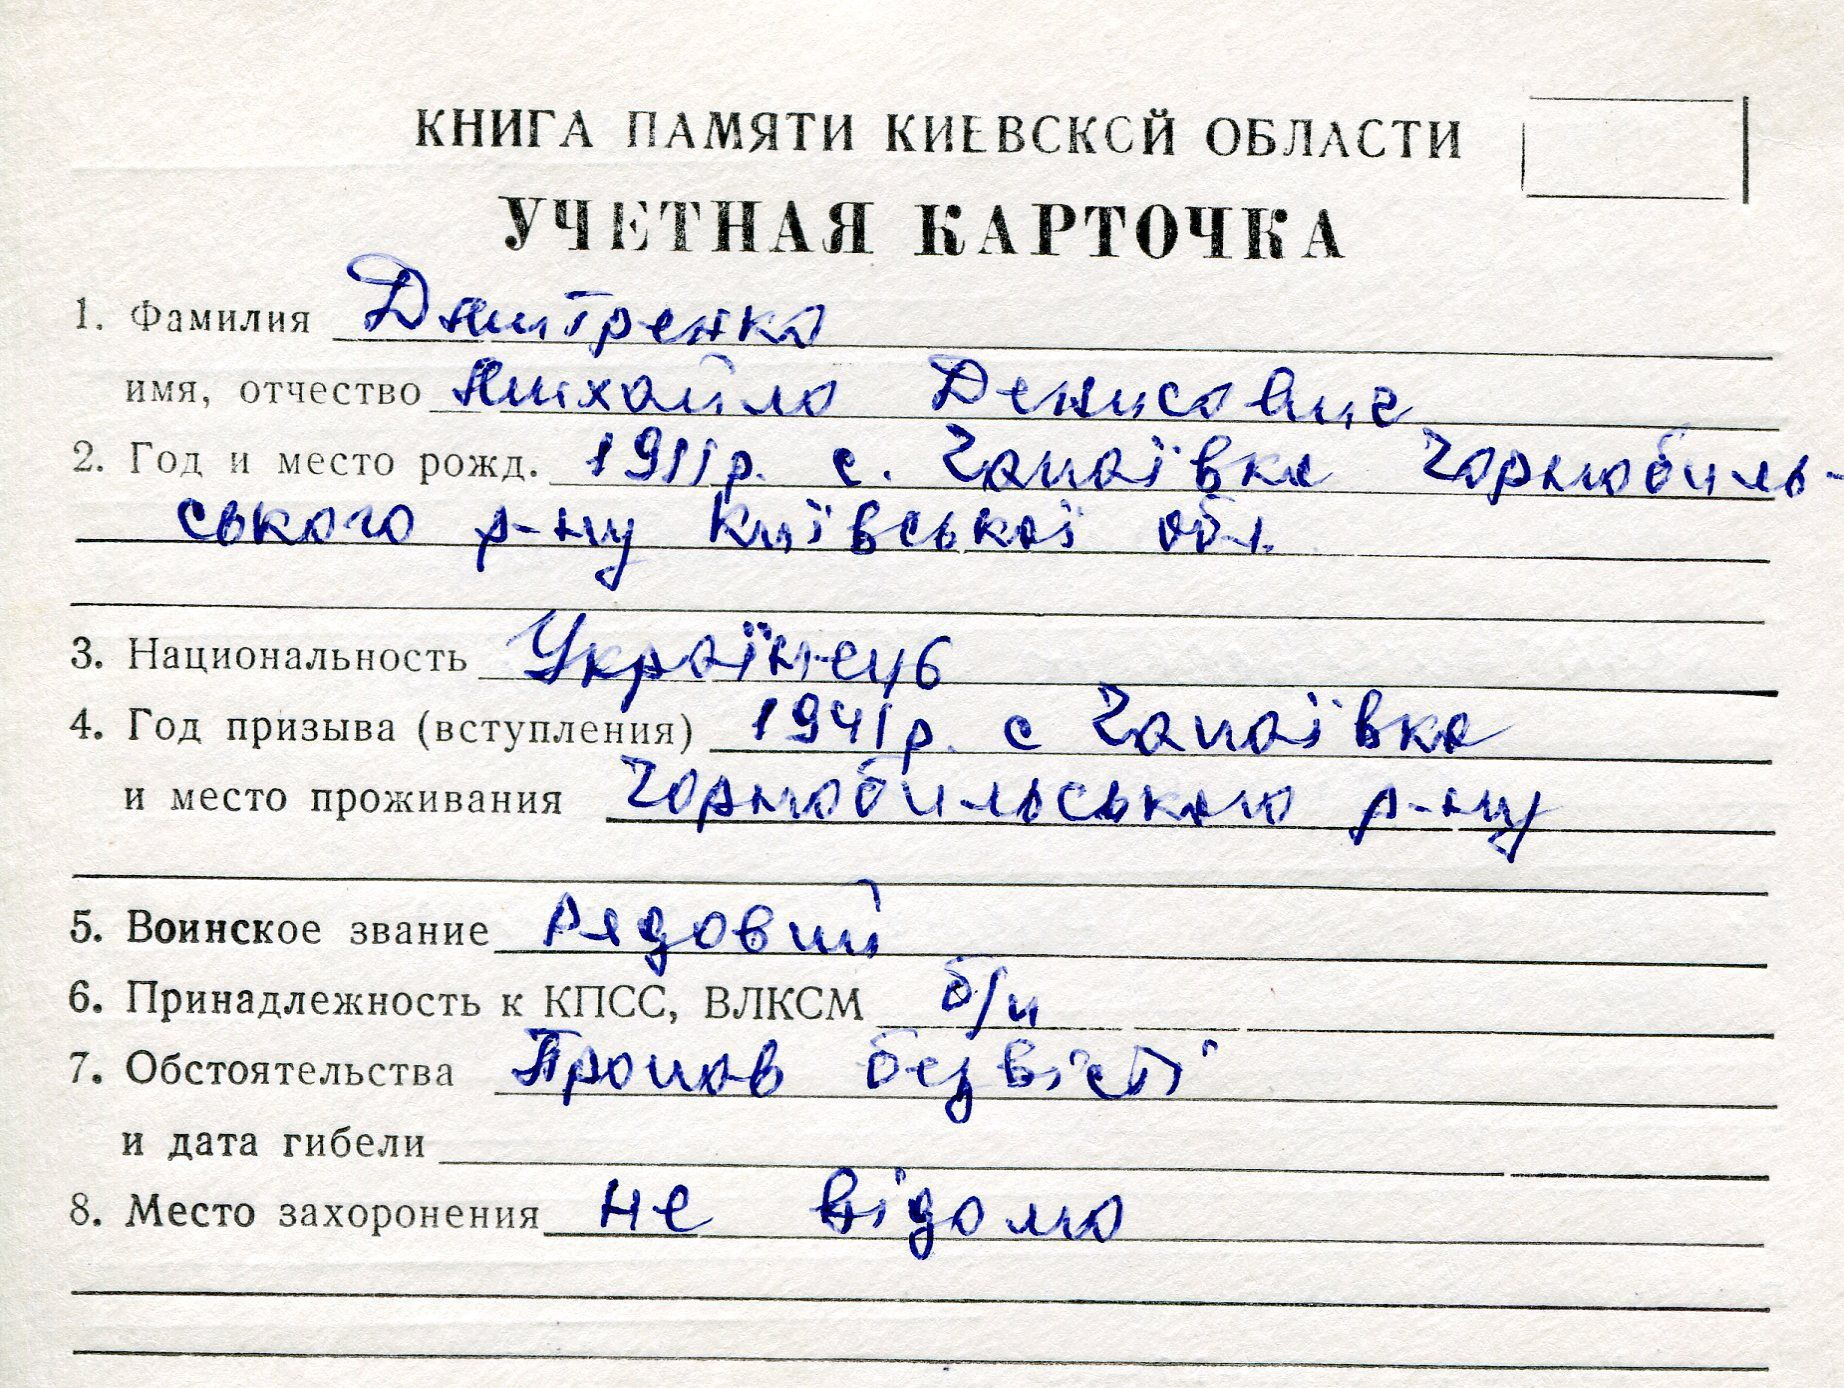 КНИГА ПАМЯТИ КИЕВСКОЙ ОБЛАСТИ
УЧЕТНАЯ КАРТОЧКА
1. Фамилия Дмитренко
имя, отчество Михайло Денисович
2. Год и место рожд. 1911 р. с. Чапаївка Чорнобиль-
ського р-ну Київської обл.
3. Национальность Українець
4. Год призыва (вступления) 1941 р. с Чапаївка
и место проживания Чорнобильського р-ну
5. Воинское звание рядовий
6. Принадлежность к КПСС, ВЛКСМ б/п
7. Обстоятельства Пропав безвісті
и дата гибели
8. Место захоронения не відомо